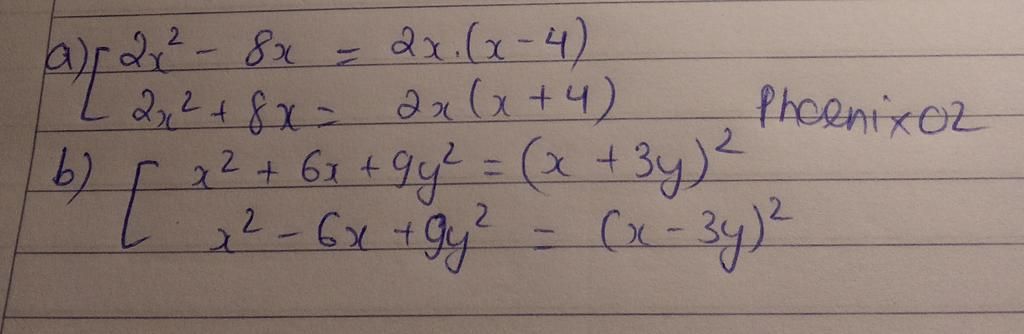 a) [ 2x² - 8x = 2x.(x-4)
2x² + 8x = 2x(x+4)
Phoenixoz
b) [ x² + 6x + 9y² = (x + 3y)²
x² - 6x + 9y² = (x - 3y)²